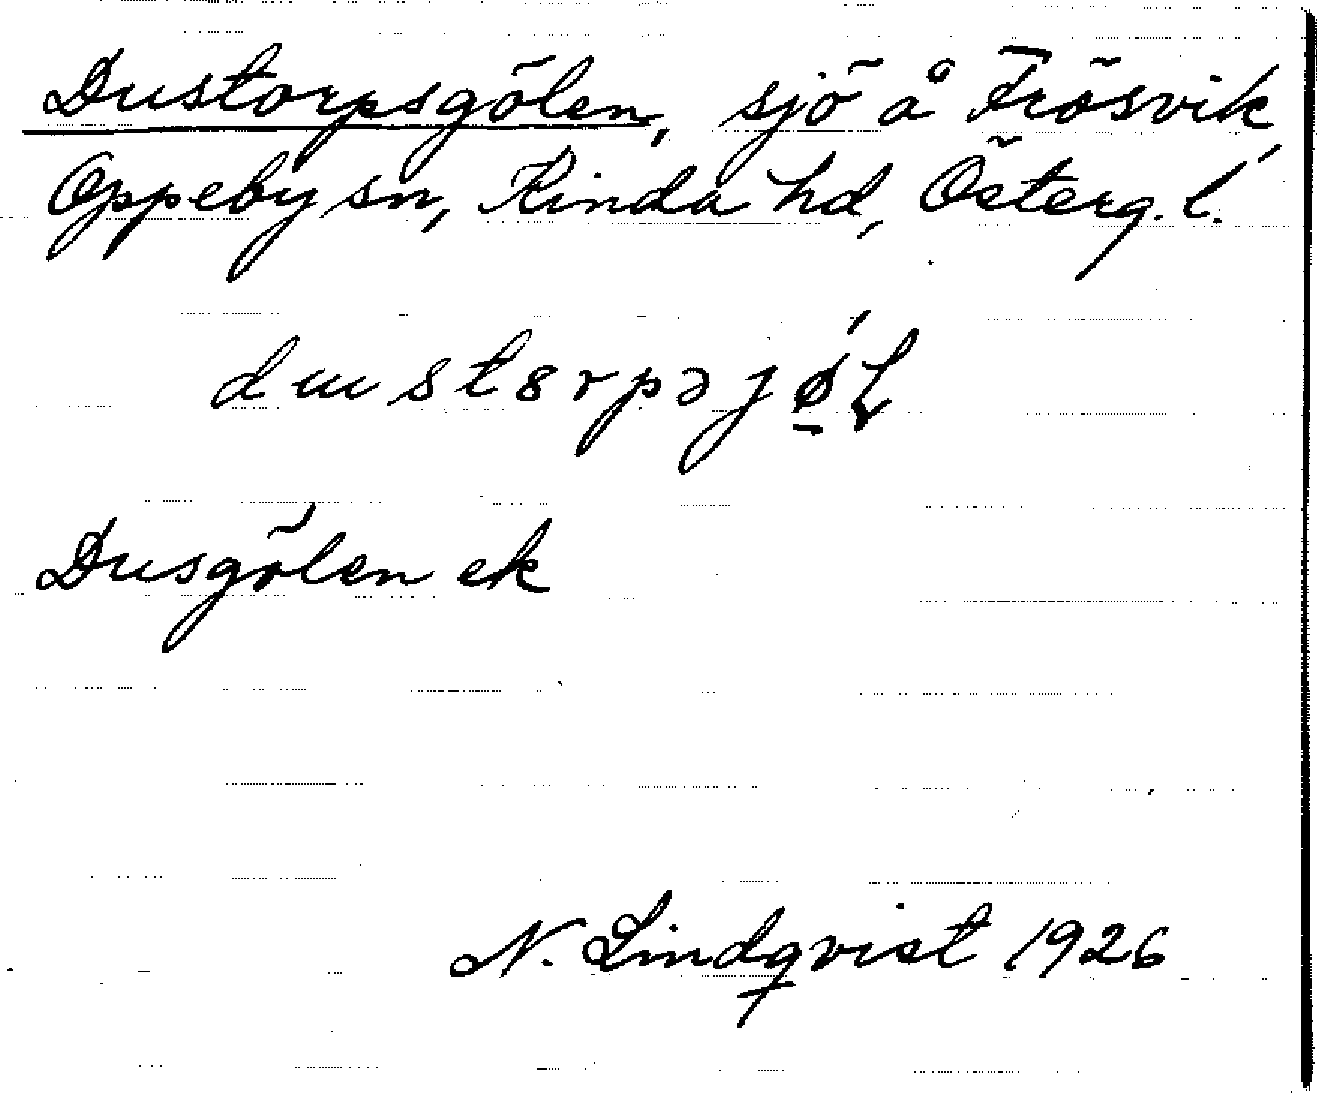 Dustorpsgölen, sjö å Frösvik,
Oppeby sn, Kinda hd, Österg. l.
Dusgölen ek
N. Lindqvist 1926